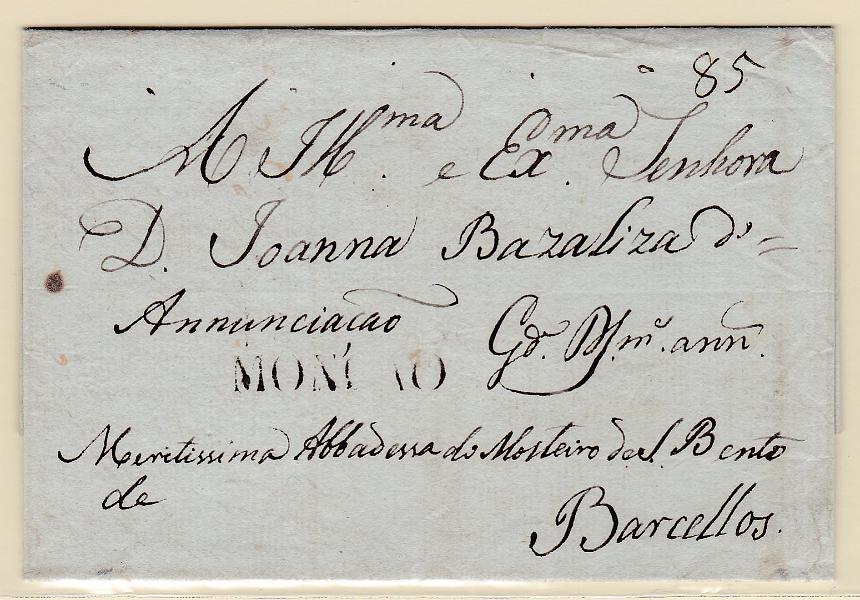 85
A Illma. e Exma. Senhora
D. Joanna Bazaliza d'=
Annunciacão Gde. Ms. ann.
MON ÃO
Meritissima Abbadessa do Mosteiro de S. Bento
de
Barcellos.